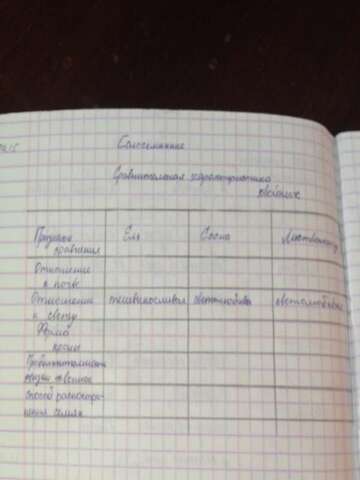 Голосеменные
Сравнительная характеристика
хвойных
Признаки сравнения Ель Сосна Лиственница
Отношение к почве
Отношение к свету теневынослива светолюбива светолюбива
Форма кроны
Продолжительность жизни
Способ распостра-
нения семян